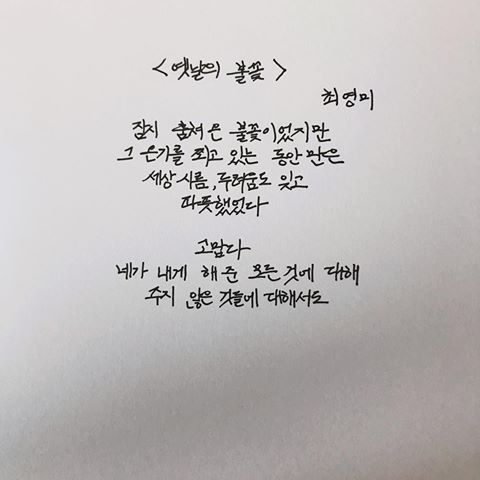 <옛날의 불꽃>
최영미
잠시 훔쳐 온 불꽃이었지만
그 온기를 쬐고 있는 동안만은
세상 시름, 두려움도 잊고
따뜻했었다
고맙다
네가 내게 해준 모든 것에 대해
주지 않은 것들에 대해서도